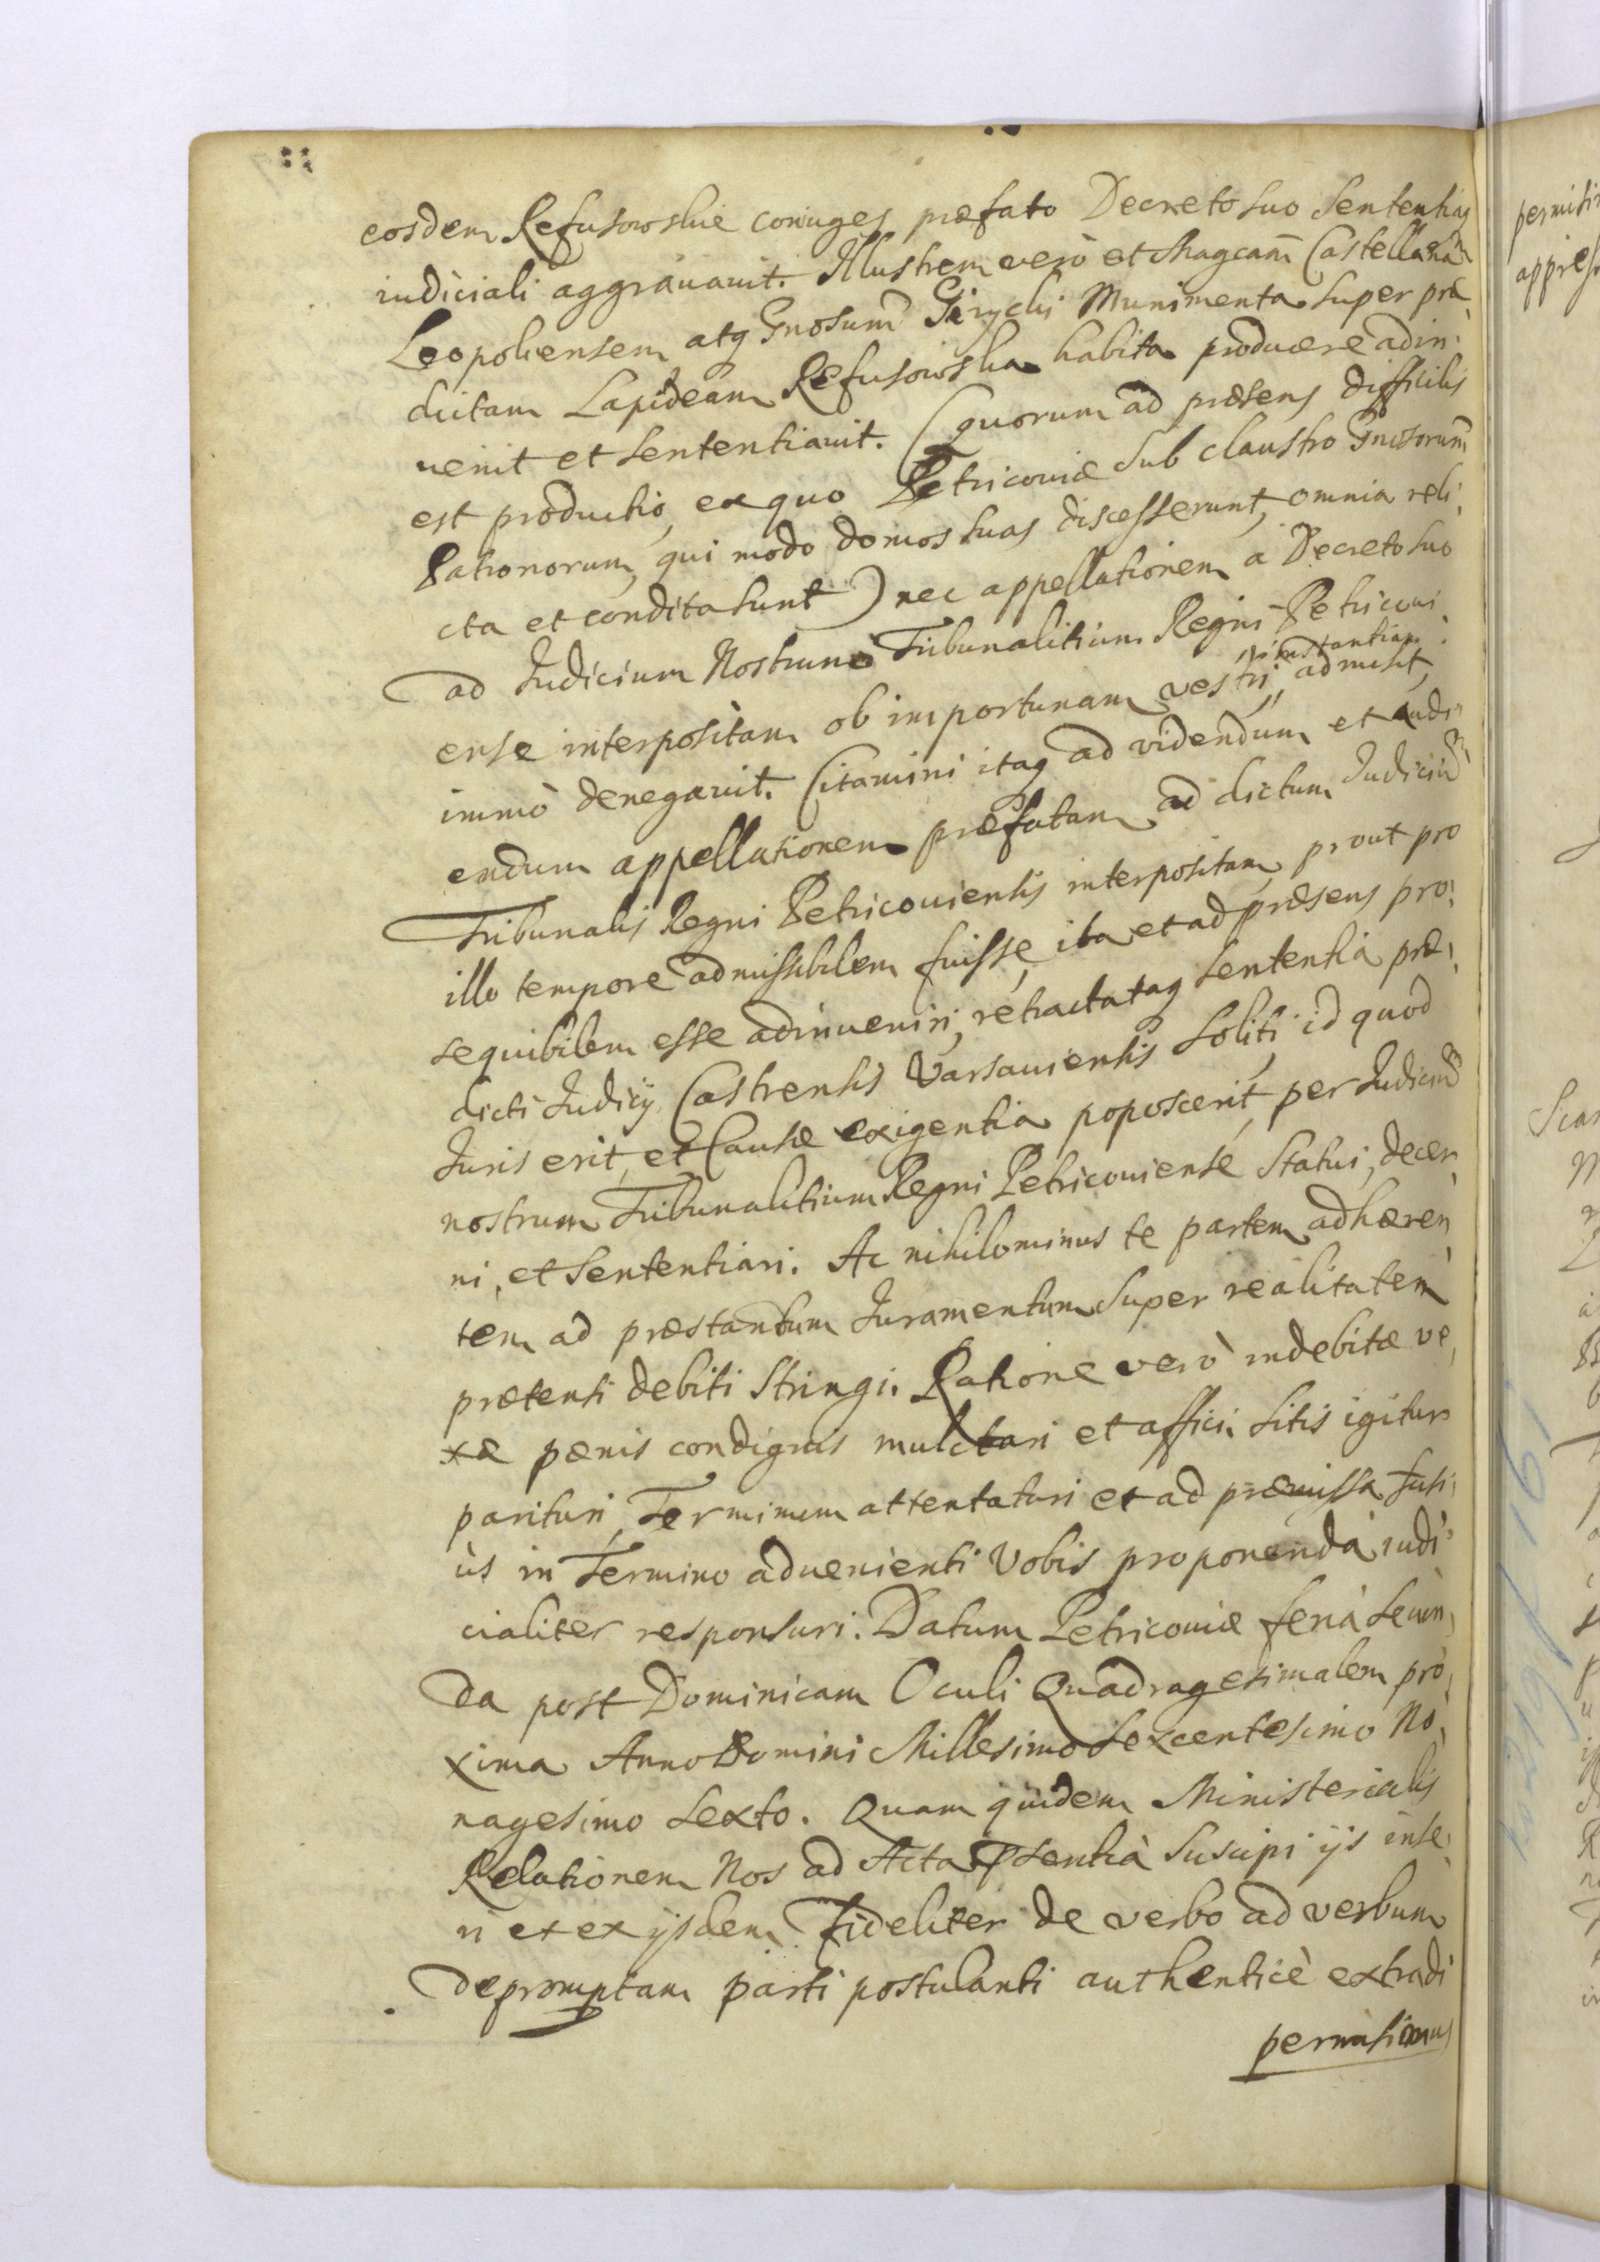 eosdem Refusowskie coniuges præfato Decreto suo Sententiaq
iudiciali aggrauauit. Illustrem verò et Magcam̃ Castellanã
Leopoliensem atq Gnosum̃ Girycki Munimenta super præ
dictam Lapideam Refusowska habita producere adin,
uenit et sententiauit. (quorum ad præsens difficilis
est productio, ex quo Petricouiæ sub claustro Gnosorum̃
Patronorum, qui modo domos suas discesserunt, omnia reli,
cta et condita sunt) nec appellationem a Decreto suo
ad Judicium Nostrum Tribunalitium Regni Petricoui
ense interpositam ob importunam vestri instantiam admisit,
immò denegauit. Citamini itaq ad videndum et audi
endum appellationem præfatam ad dictum Judiciũ
Tribunalis Regni Petricouiensis interpositam, prout pro
illo tempore admissibilem fuisse, ita et ad præsens pro,
sequibilem esse adinueniri, retractataq sententia præ,
dicti Judicij Castrensis Varsauiensis soliti, id quod
Juris erit, et Causæ exigentia poposcerit, per Judiciũ
nostrum Tribunalitium Regni Petricouiense Statui, decer
ni, et Sententiari. Ac nihilominus te partem adhæren
tem ad præstandum Juramentum super realitatem
prætensi debiti Stringi. Ratione verò indebitæ ve,
xæ pænis condignis mulctari et affici. Sitis igitur
parituri, Terminum attentaturi et ad præmissa fusi,
ùs in Termino aduenienti Vobis proponenda iudi,
cialiter responsuri. Datum Petricouiæ feria secun,
da post Dominicam Oculi Quadragesimalem pro,
xima Anno Domini Millesimo Sexcentesimo No,
nagesimo Sexto. Quam quidem Ministerialis
Relationem Nos ad Acta Pñsentia Suscipi ijs inse,
ri et ex ijsdem Fideliter de verbo ad verbum
depromptam parti postulanti authenticè extradi
permisimus